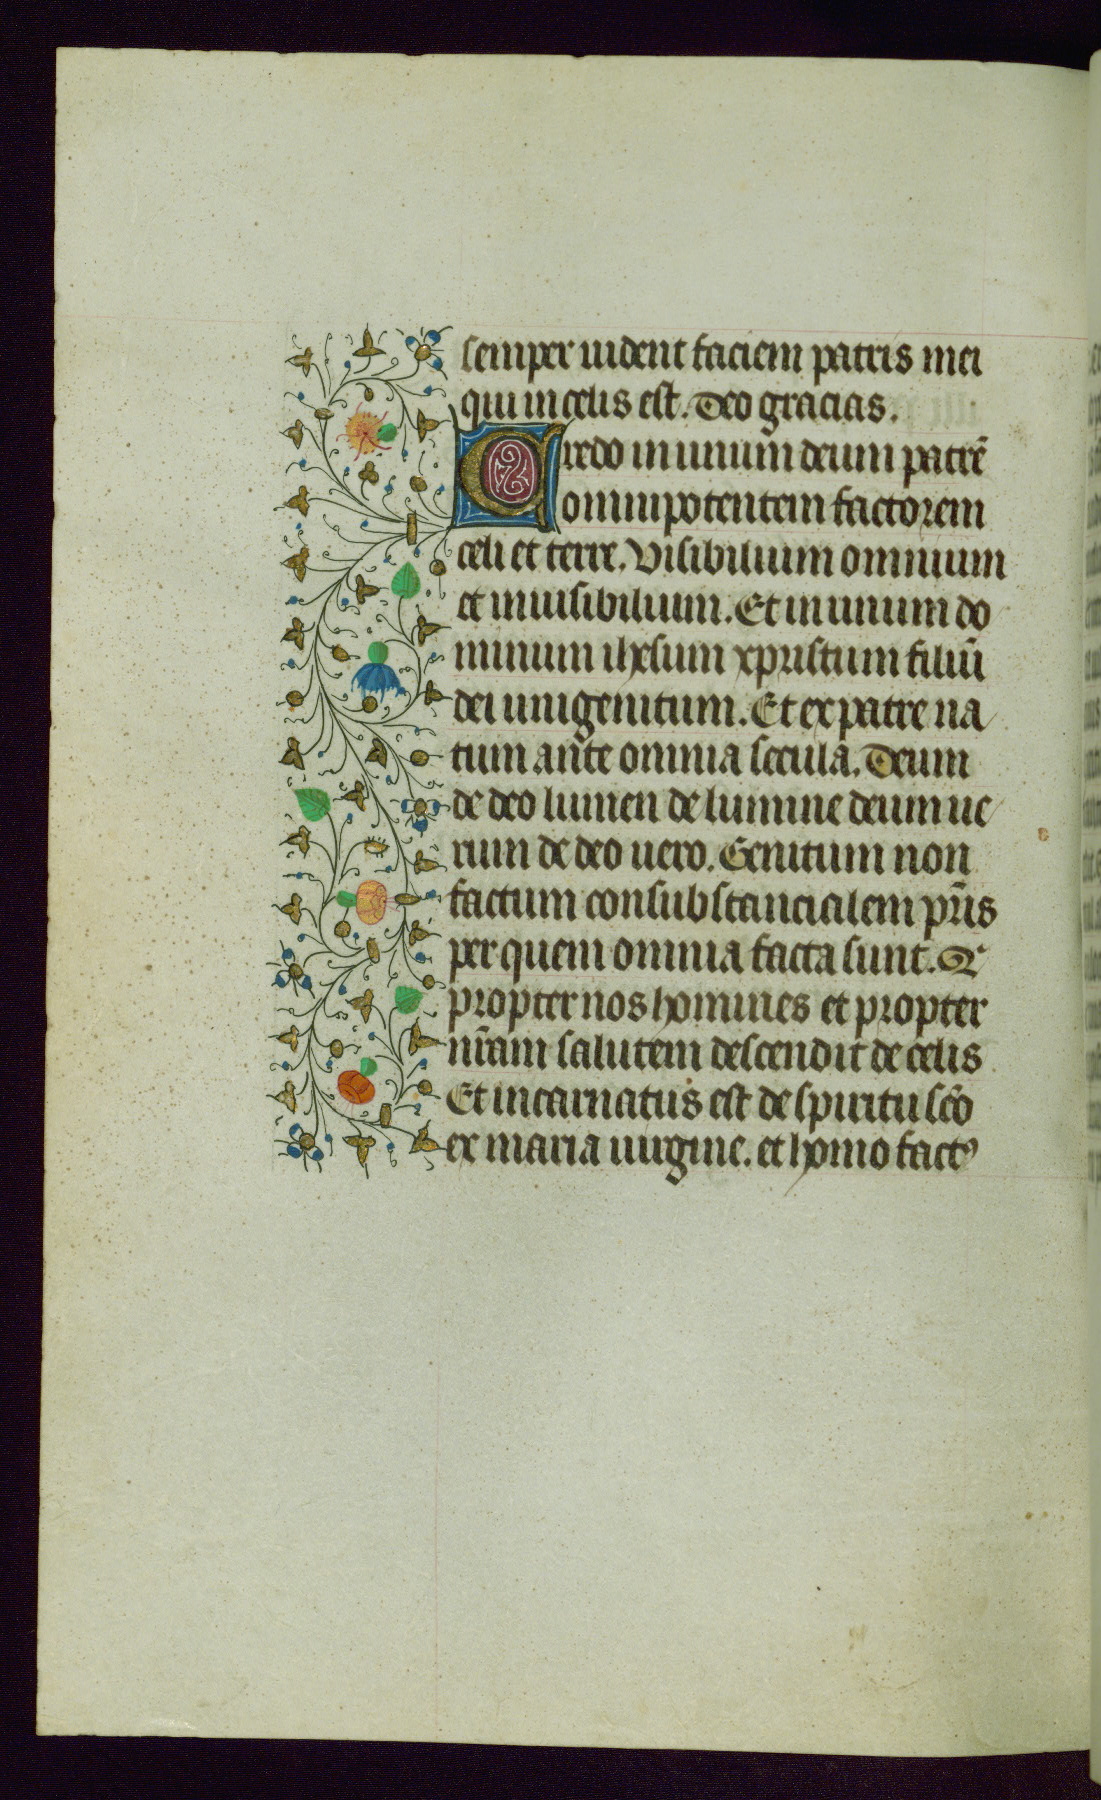 semper uident faciem patris mei
qui in celis est. Deo gracias.
Credo in unum deum patrē
omnipotentem factorem
celi et terre. Visibilium omnium
et inuisibilium. Et in unum do
minum ihesum xpristum filiū
dei unigenitum. Et ex patre na
tum ante omnia secula. Deum
de deo lumen de lumine deum ue
rum de deo uero. Genitum non
factum consubstancialem pr̄is
per quem omnia facta sunt. Et
propter nos homines et propter
nr̄am salutem descendit de celis
Et incarnatus est de spiritu scō
ex maria uirgine. et homo factꝰ